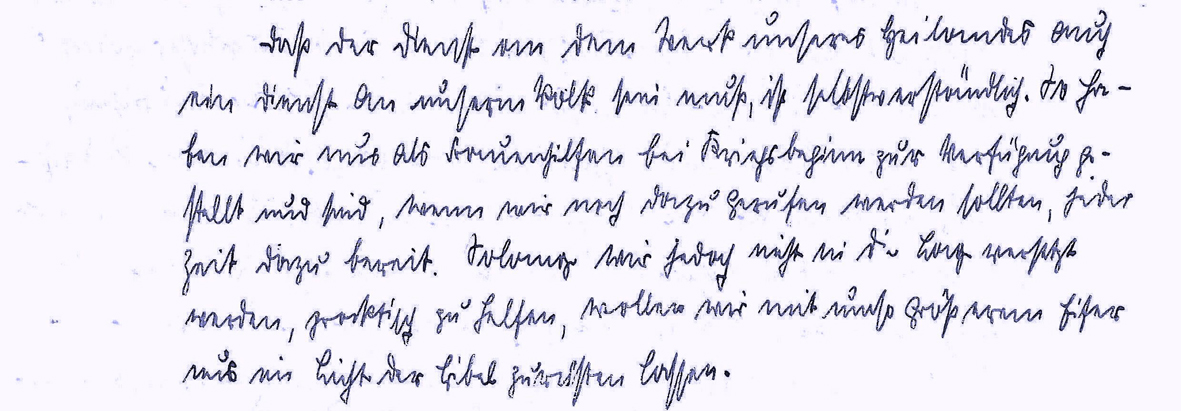 Daß der Dienst an dem Werk unseres Heilandes auch
ein Dienst an unserm Volk sein muß, ist selbstverständlich. So ha-
ben wir uns als Frauenhilfen bei Kriegsbeginn zur Verfügung ge-
stellt und sind, wenn wir noch dazu gerufen werden sollten, jeder
Zeit dazu bereit. Solange wir jedoch nicht in die Lage versetzt
werden, praktisch zu helfen, wollen wir mit umso größerem Eifer
uns im Licht der Bibel zurüsten lassen.